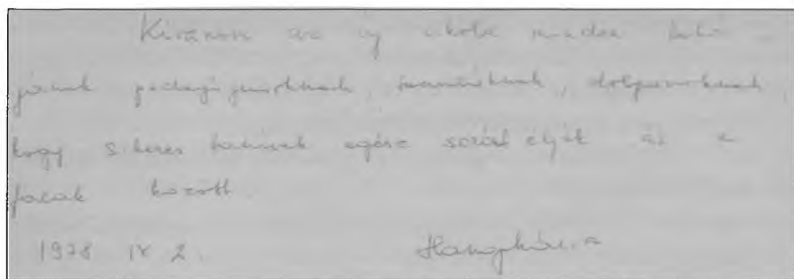 Kívánom az új iskola minden lakó-
jának pedagógusoknak, tanulóknak, dolgozóknak
hogy sikeres tanévek egész sorát éljék át e
falak között.
1978 IX 2.